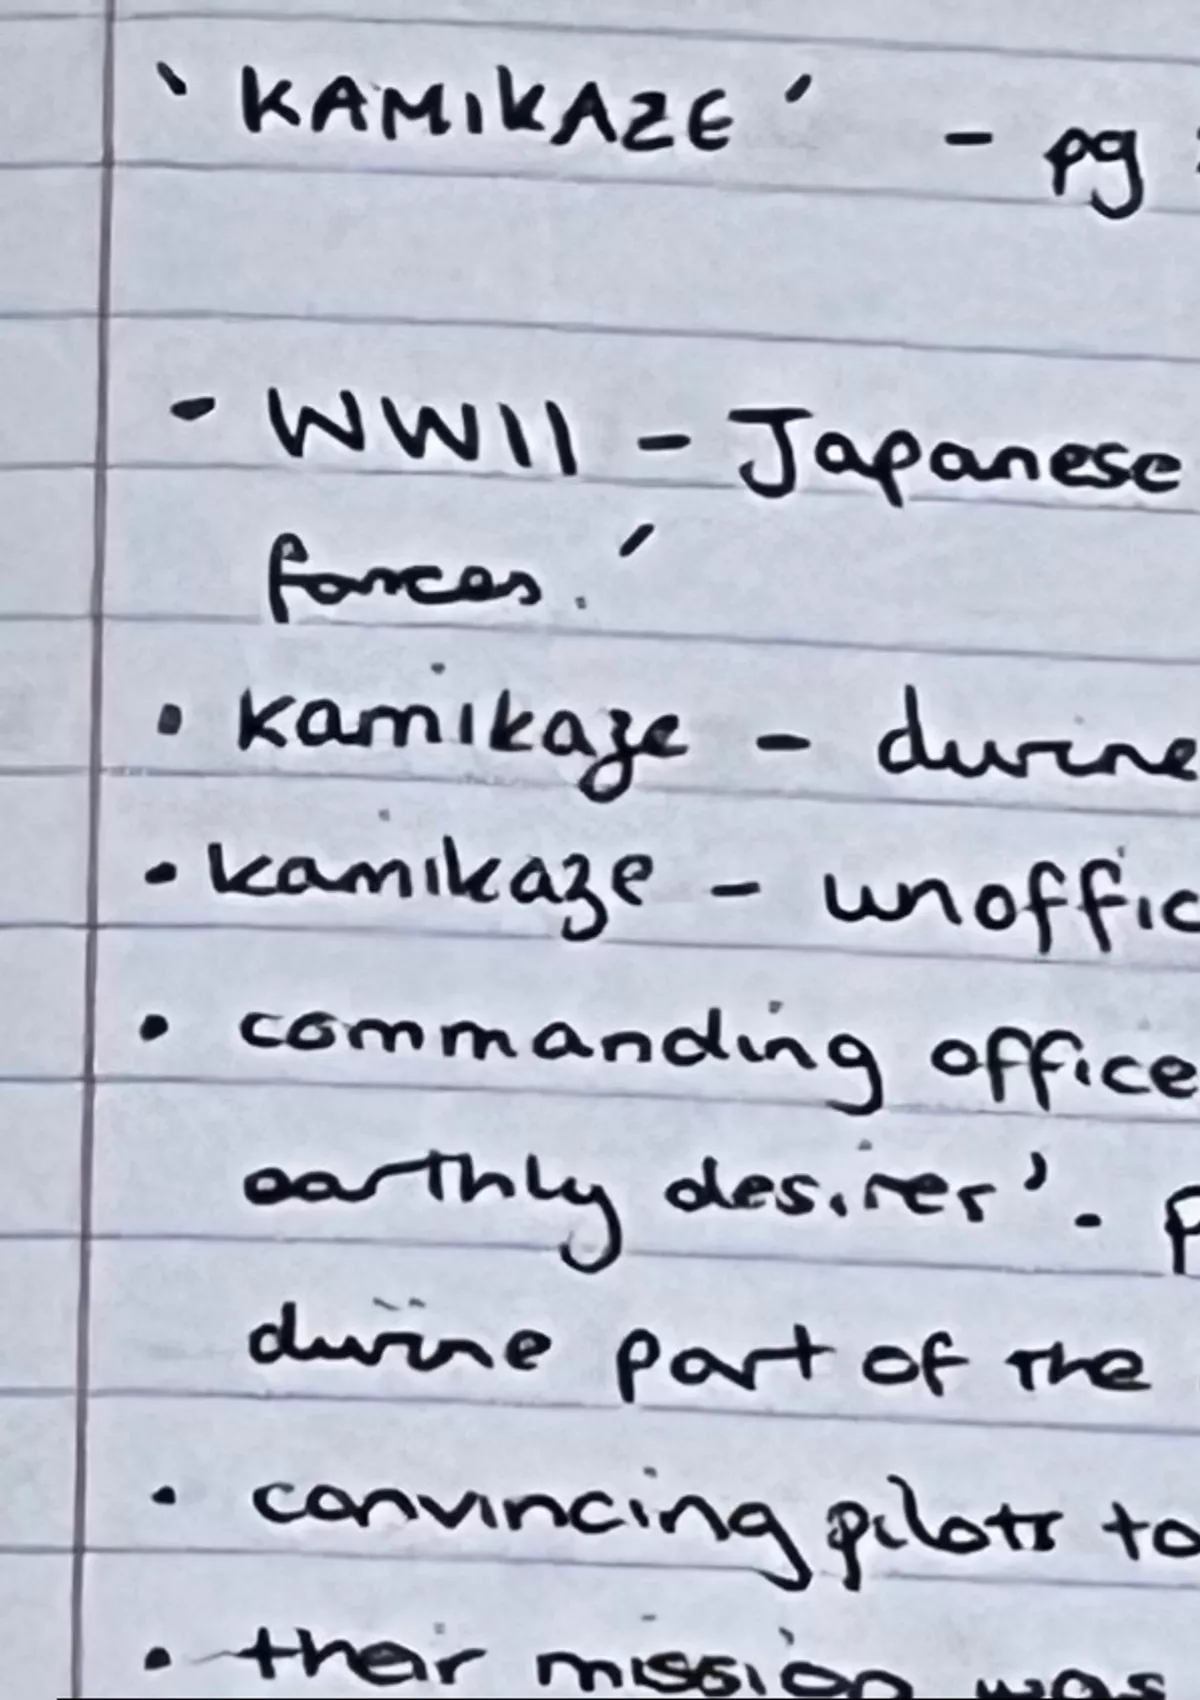 ‵ KAMIKAZE ′ - pg
- WWII - Japanese
forces.′
• kamikaze - divine
• kamikaze - unoffic
• commanding office
earthly desires'. P
divine part of the
• convincing pilots to
• their mission was